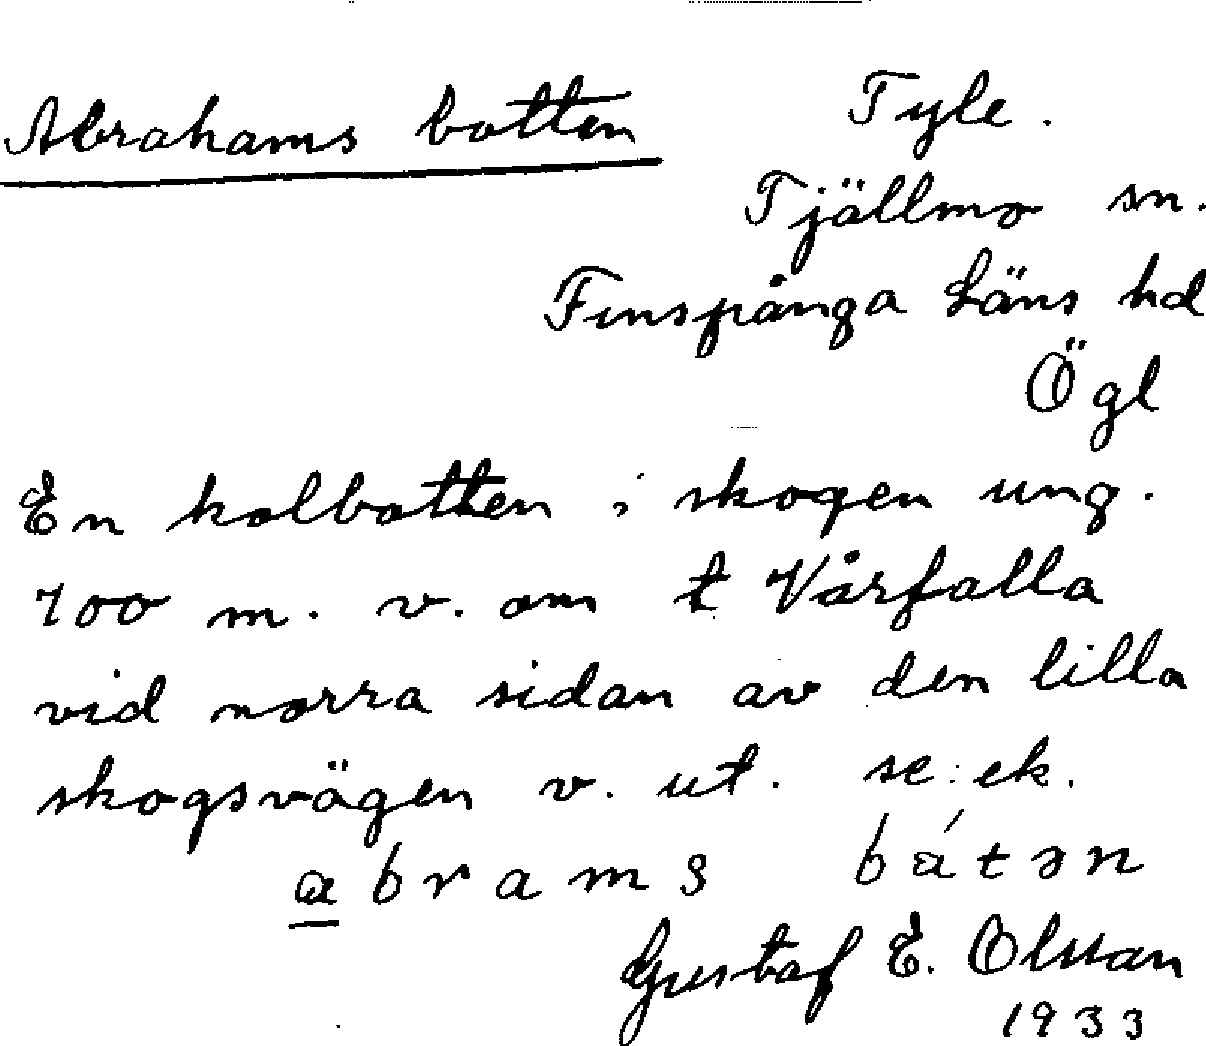 Abrahams botten
Tyle.
Tjällmo sn.
Finspånga Läns hd
Ögl
En kolbotten i skogen ung.
100 m. v. om t Vårfalla
vid norra sidan av den lilla
skogsvägen v. ut. se: ek.
abrams bátən
Gustaf E. Olsson
1933